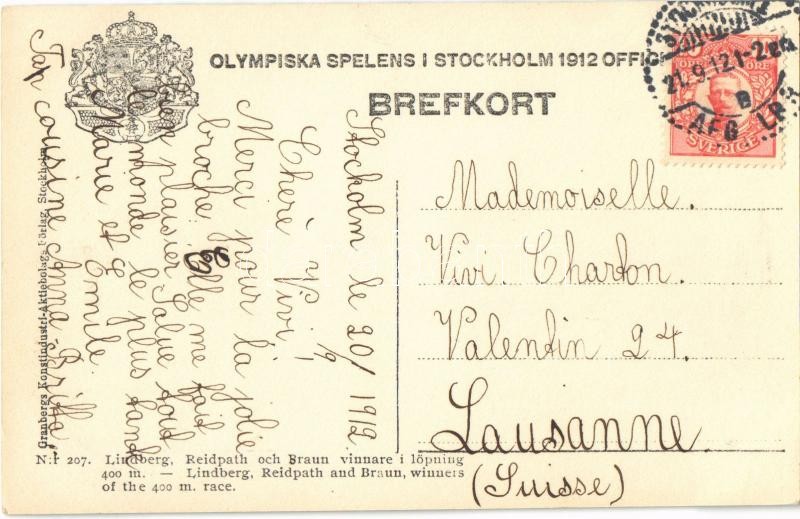 OLYMPISKA SPELENS I STOCKHOLM 1912 OFFIC
BREFKORT
STOCKHOLM
21.9.12 1-2 em
B
AFG LBR
ÖRE ÖRE
SVERIGE
Stockolm le 20/9 1912
Chère Vivi!
Merci pour ta jolie
broche. Elle me fait
plaisir. Salue tout
le monde, le plus tand
Marie et Emile.
Ta cousine Anna-Britta.
Mademoiselle.
Vivi. Charton.
Valentin 24.
Lausanne
(Suisse)
Granbergs Konstindustri-Aktiebolags Förlag, Stockholm
N:r 207. Lindberg, Reidpath och Braun vinnare i löpning
400 m. — Lindberg, Reidpath and Braun, winners
of the 400 m. race.